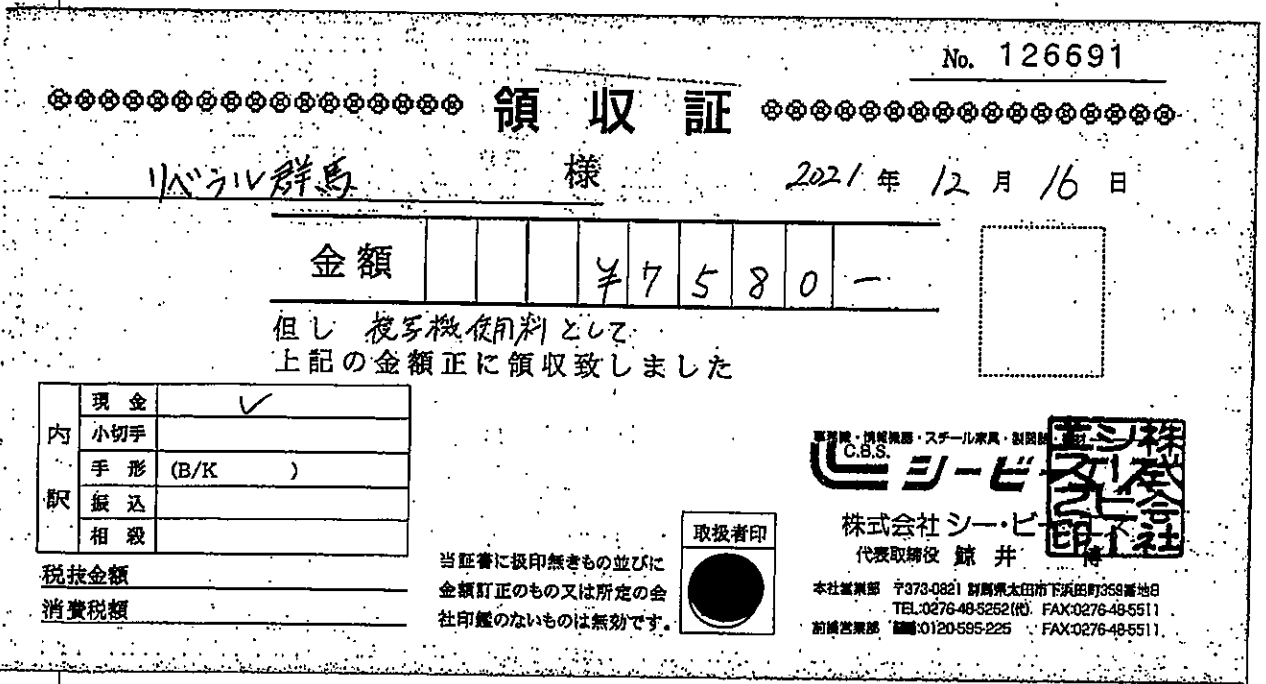 No. 126691
領収証
リベラル群馬 様 2021年12月16日
金額 ¥7580-
但し 複写機使用料として
上記の金額正に領収致しました
内訳
現金 ✓
小切手
手形 (B/K )
振込
相殺
税抜金額
消費税額
当証書に扱印無きもの並びに
金額訂正のもの又は所定の会
社印鑑のないものは無効です。
取扱者印
事務機・情報機器・スチール家具・製図
C.B.S.
シービー
株式会社 シー・ビー
代表取締役 鯨井 博
本社営業部 〒373-0821 群馬県太田市下浜田町359番地8
TEL:0276-48-5252(代) FAX:0276-48-5511
前橋営業部 :0120-595-225 FAX:0276-48-5511